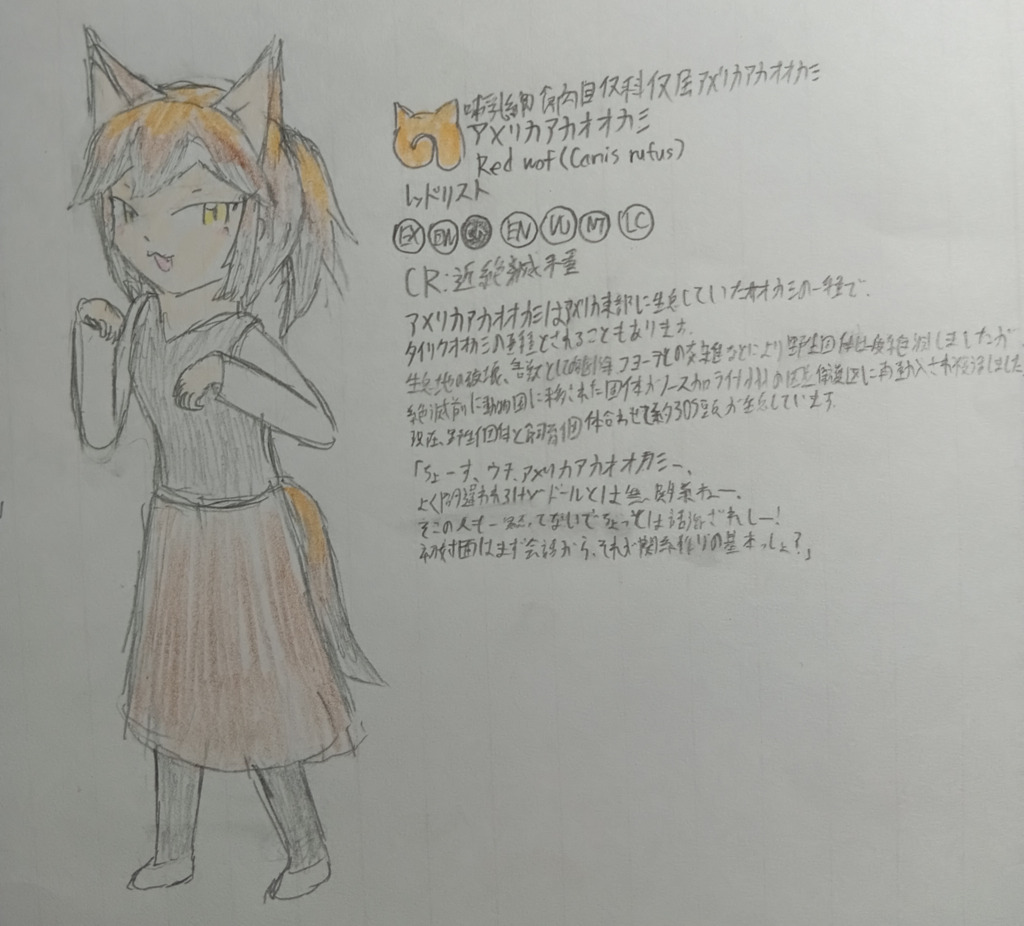 哺乳綱 食肉目イヌ科イヌ属アメリカアカオオカミ
アメリカアカオオカミ
Red wof (Canis rufus)
レッドリスト
EX EW CR EN VU NT LC
CR:近絶滅種
アメリカアカオオカミはアメリカ東部に生息していたオオカミの一種で、
タイリクオオカミの亜種とされることもあります。
生息地の破壊、害獣としての コヨーテとの交雑などにより野生個体は一度絶滅しましたが
絶滅前に動物園に移された個体がノースカロライナ州の 保護区に再導入され復活しました
現在、野生個体と飼育個体合わせて約305頭が生息しています。
「ちょーす、ウチ、アメリカアカオオカミー、
よく間違われる とは無関係ねー。
そこの人も 黙ってないでちょっとは話そうぜー!
初対面はまず会話から、それが関係作りの基本っしょ?」